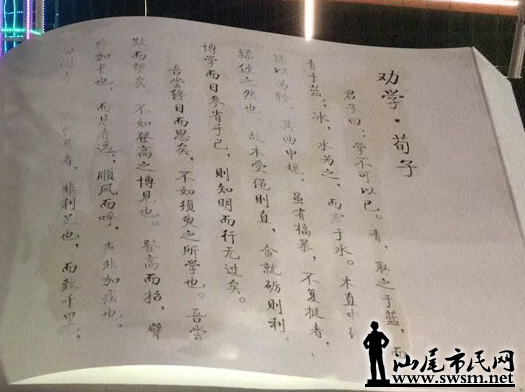 劝学·荀子
君子曰：学不可以已。青，取之于蓝，而
青于蓝；冰，水为之，而寒于水。木直中
以为轮，其曲中规，虽有槁暴，不复挺者，
使之然也。故木受绳则直，金就砺则利，
博学而日参省乎己，则知明而行无过矣。
吾尝终日而思矣，不如须臾之所学也。吾尝
跂而望矣，不如登高之博见也。登高而招，臂
非加长也，而见者远；顺风而呼，声非加疾也，
者，非利足也，而致千里，
山尾市民网
www.swsm.net